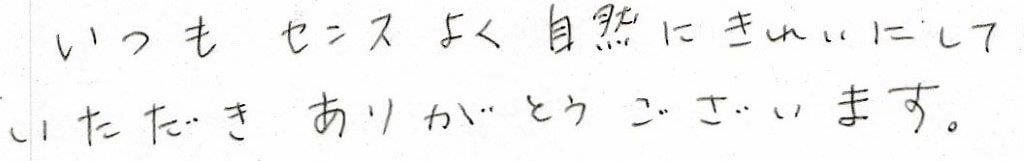 いつも センス よく 自然に きれいにして
いただき ありがとう ございます。